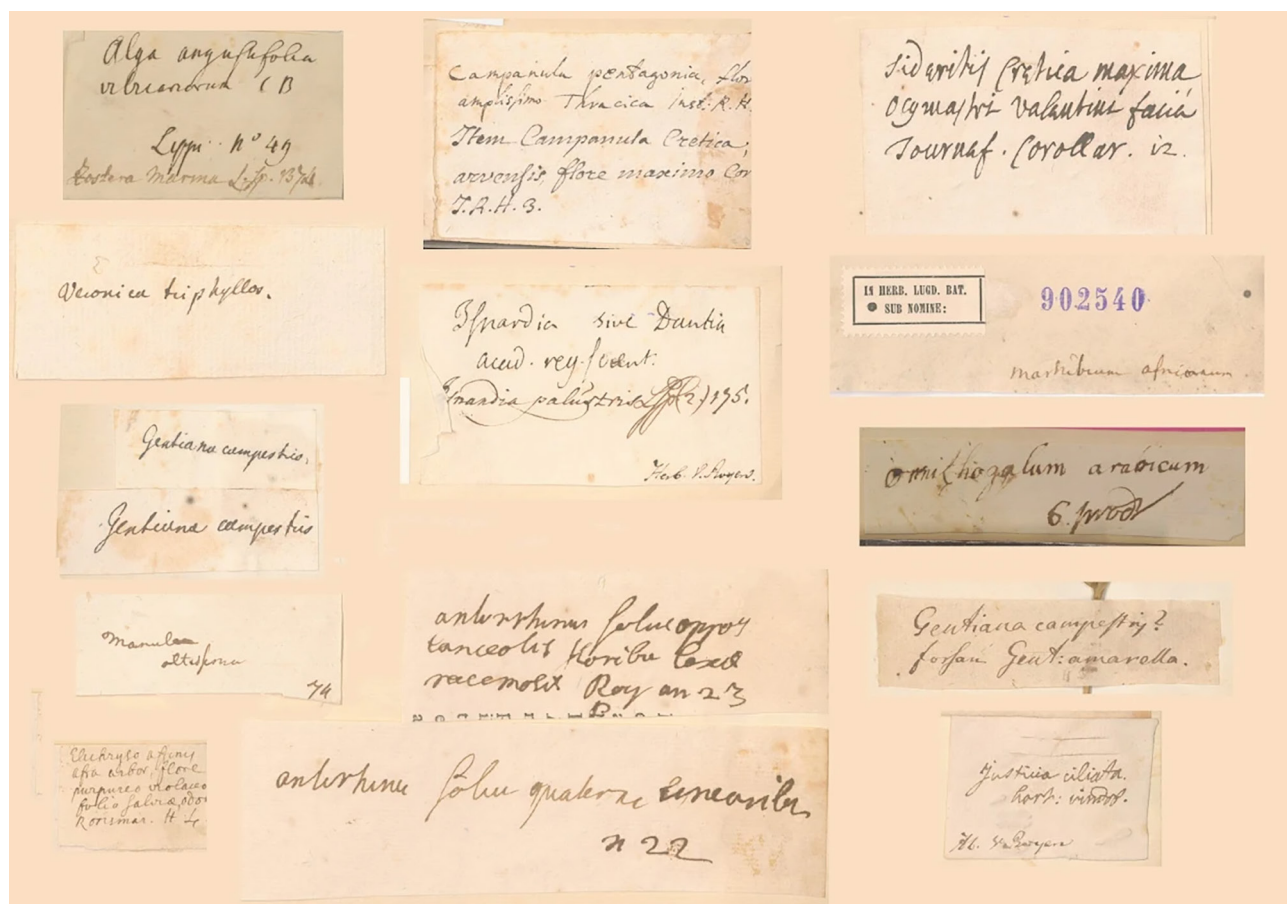 Alga angustifolia
vitriariorum C B
Lippi. no 49
Zostera Marina L. sp. 1374
Veronica triphyllos.
Gentiana campestris.
Gentiana campestris
Manulea
altissima
74
Elichryso affinis
afra arbor, flore
purpureo violaceo
folio salviæ, odo
Rorismar. H L
Campanula pentagonia, flor
amplissimo Thracica Inst. R. H.
Item Campanula Cretica,
arvensis, flore maximo Cor
I. R. H. 3.
Isnardia sive Dantia
acad. reg. scient.
Isnardia palustris L. Sp. (2) 175.
Herb. v. Royen.
antirrhinum foliis oppos
lanceolis floribus laxe
racemosis Roy an 23
antirrhinum foliis quaternis linearibus
n 22
Sideritis Cretica maxima
ocymastri valentini facia
Tournef. Corollar. 12.
IN HERB. LUGD. BAT.
SUB NOMINE:
902540
marrhibium africanum
ornithogalum arabicum
6. prodr
Gentiana campestris?
forsan Gent: amarella.
Justicia ciliata.
hort: vindob.
H. v Royen